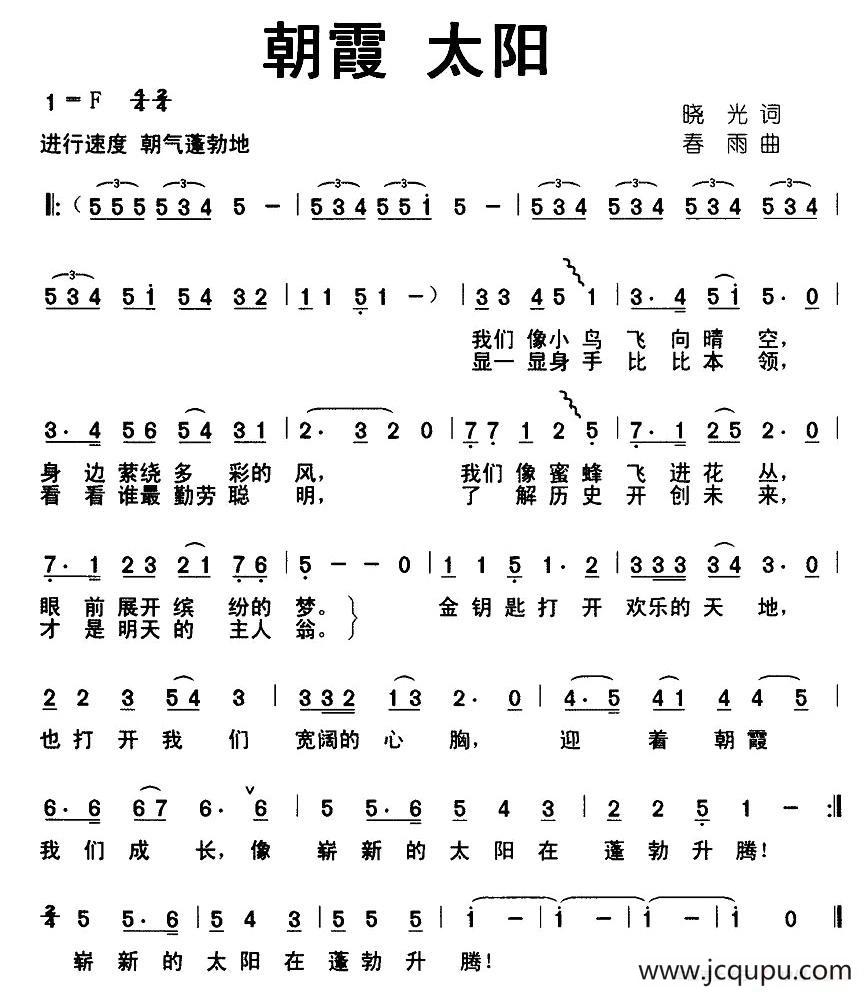 朝霞 太阳
1=F 4/4 2/4
晓 光 词
进行速度 朝气蓬勃地
春 雨 曲
‖:（5 5 5 5 3 4 5 － | 5 3 4 5 5 i 5 － | 5 3 4 5 3 4 5 3 4 5 3 4 |
5 3 4 5 i 5 4 3 2 | 1 1 5 1 －） | 3 3 4 5 1 | 3· 4 5 i 5· 0 |
我们 像小 鸟 飞 向 晴 空，
显一 显身 手 比 比 本 领，
3· 4 5 6 5 4 3 1 | 2· 3 2 0 | 7 7 1 2 5 | 7· 1 2 5 2· 0 |
身 边 萦绕 多 彩的 风， 我们 像 蜜 蜂 飞 进 花 丛，
看 看 谁最 勤劳 聪 明， 了 解 历 史 开 创 未 来，
7· 1 2 3 2 1 7 6 | 5 － － 0 | 1 1 5 1· 2 | 3 3 3 3 4 3· 0 |
眼 前 展开 缤 纷的 梦。 金 钥 匙 打 开 欢乐的 天 地，
才 是 明天 的 主人 翁。
2 2 3 5 4 3 | 3 3 2 1 3 2· 0 | 4· 5 4 1 4 4 5 |
也 打 开 我 们 宽阔的 心 胸， 迎 着 朝 霞
6· 6 6 7 6· 6 | 5 5· 6 5 4 3 | 2 2 5 1 － :‖
我 们 成 长，像 崭 新 的 太 阳 在 蓬 勃 升 腾！
2/4 5 5· 6 | 5 4 3 | 5 5 5 | i － | i － | i － | i 0 ‖
崭 新 的 太 阳 在 蓬 勃 升 腾！
www.jcqupu.com